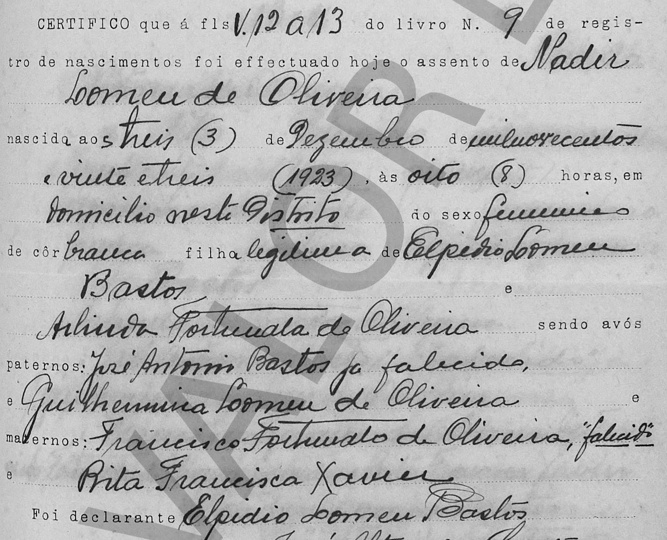 CERTIFICO que á fls V.12 a 13 do livro N. 9 de regis-
tro de nascimentos foi effectuado hoje o assento de Nadir
Lomeu de Oliveira
nascida aos treis (3) de Dezembro de mil novecentos
e vinte e treis (1923), às oito (8) horas, em
domicilio neste Districto do sexo feminino
de côr branca filha legitima de Elpidio Lomeu
Bastos e
Arlinda Fortunata de Oliveira sendo avós
paternos: José Antonio Bastos ja falecido,
e Guilhermina Lomeu de Oliveira e
maternos: Francisco Fortunato de Oliveira, "falecido"
e Rita Francisca Xavier
Foi declarante Elpidio Lomeu Bastos
VALOR